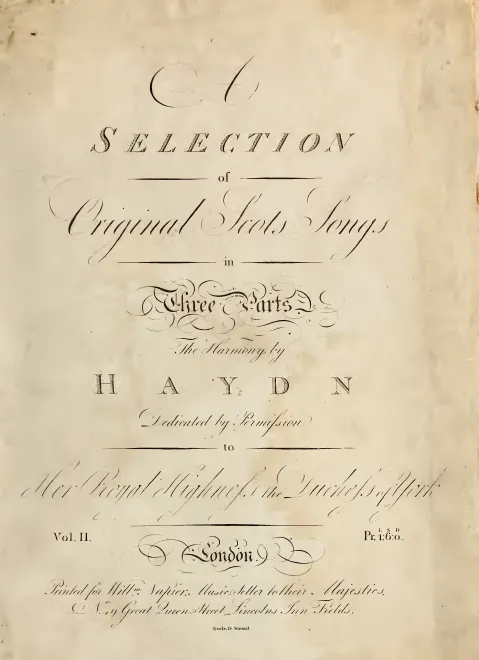 A
SELECTION
of
Original Scots Songs
in
Three Parts
The Harmony by
HAYDN
Dedicated by Permiſsion
to
Her Royal Highneſs the Ducheſs of York
Vol. II.
L S D
Pr. 1:6:0.
London.
Printed for Willm. Napier, Music Seller to their Majesties,
Great Queen Street, Lincolns Inn Fields.